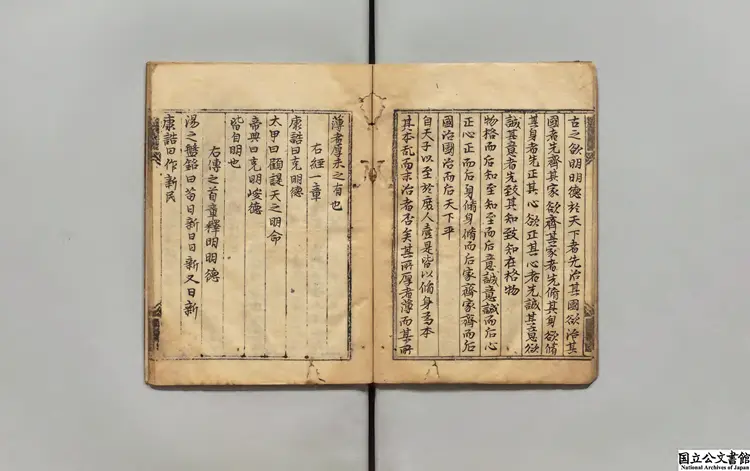 古之欲明明德於天下者先治其國欲治其
國者先齊其家欲齊其家者先脩其身欲脩
其身者先正其心欲正其心者先誠其意欲
誠其意者先致其知致知在格物
物格而后知至知至而后意誠意誠而后心
正心正而后身脩身脩而后家齊家齊而后
國治國治而后天下平
自天子以至於庶人壹是皆以脩身為本
其本亂而末治者否矣其所厚者薄而其所
薄者厚未之有也
右經一章
康誥曰克明德
太甲曰顧諟天之明命
帝典曰克明峻德
皆自明也
右傳之首章釋明明德
湯之盤銘曰苟日新日日新又日新
康誥曰作新民
国立公文書館
National Archives of Japan